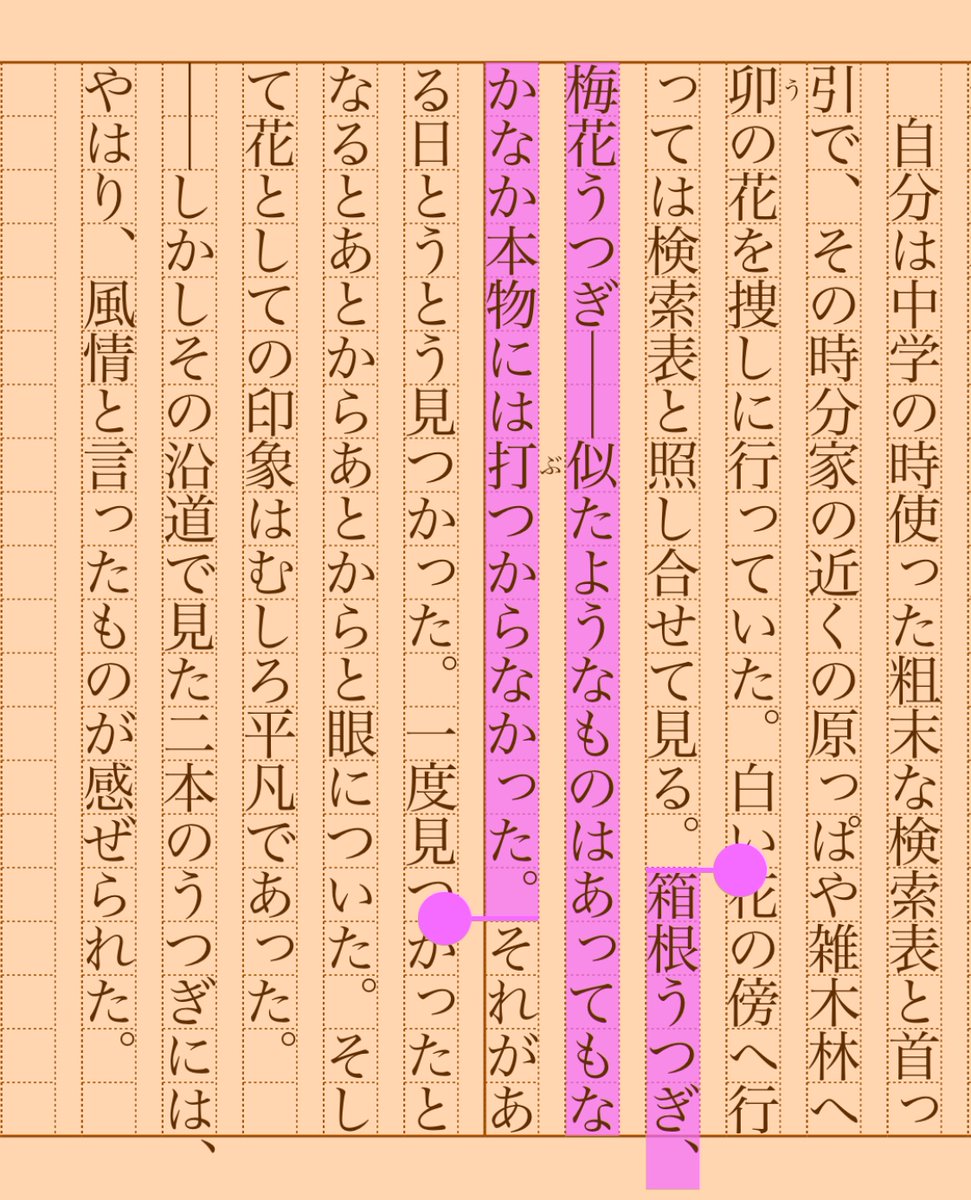 自分は中学の時使った粗末な検索表と首っ
引で、その時分家の近くの原っぱや雑木林へ
卯の花を捜しに行っていた。白い花の傍へ行
う
っては検索表と照し合せて見る。箱根うつぎ、
梅花うつぎ――似たようなものはあってもな
かなか本物には打つからなかった。それがあ
ぶ
る日とうとう見つかった。一度見つかったと
なるとあとからあとからと眼についた。そし
て花としての印象はむしろ平凡であった。
――しかしその沿道で見た二本のうつぎには、
やはり、風情と言ったものが感ぜられた。